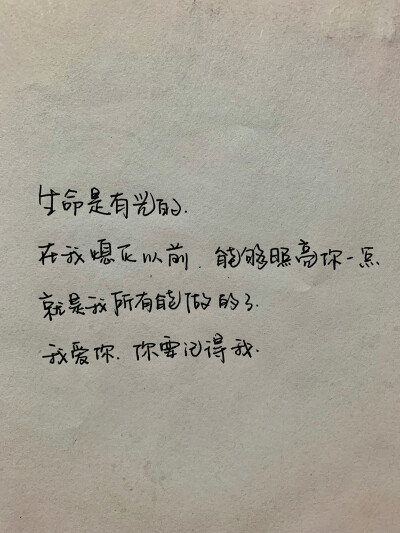 生命是有光的.
在我熄灭以前.能够照亮你一点
就是我所有能做的了.
我爱你.你要记得我.